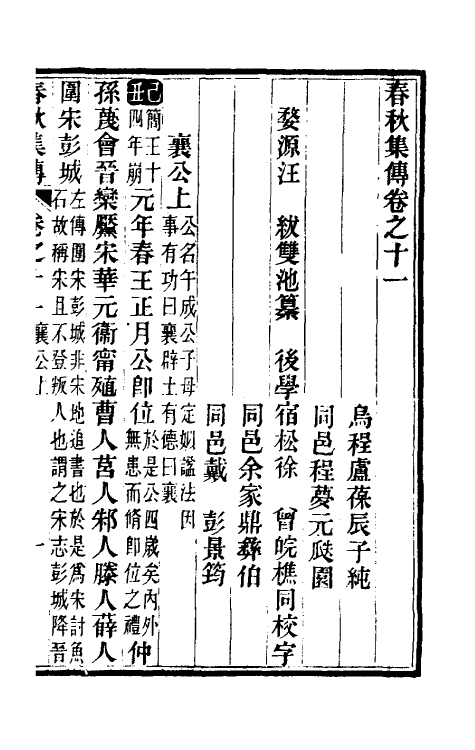 春秋集傳卷之十一
烏程盧葆辰子純
同邑程夢元燮園
婺源汪 紱雙池纂 後學宿松徐 曾皖樵同校字
同邑余家鼎彝伯
同邑戴 彭景筠
襄公上 公名午成公子母定姒諡法因
事有功曰襄辟土有德曰襄
己丑 簡王十
四年崩 元年春王正月公卽位 於是公四歲矣內外
無患而脩卽位之禮 仲
孫蔑會晉欒黶宋華元衞甯殖曹人莒人邾人滕人薛人
圍宋彭城 左傳圍宋彭城非宋地追書也於是爲宋討魚
石故稱宋且不登叛人也謂之宋志彭城降晉
春秋集傳 卷之十一 襄公上 一